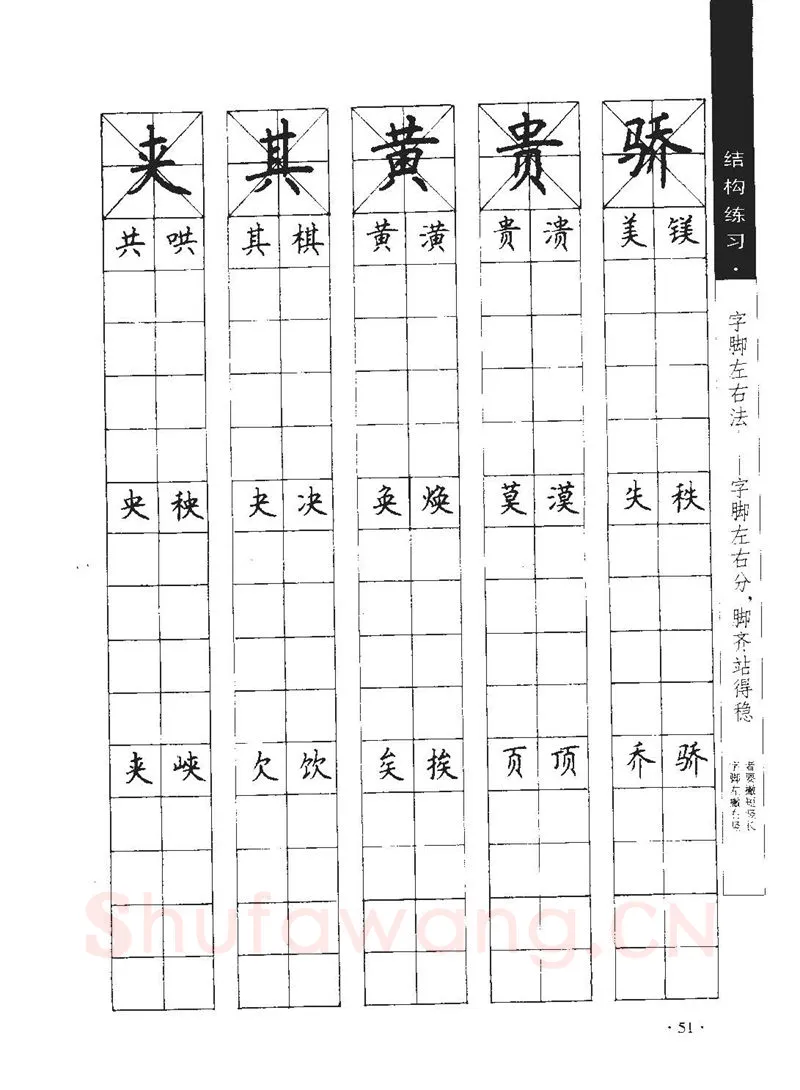 夹 其 黄 贵 骄
共 哄 其 棋 黄 潢 贵 溃 美 镁
央 秧 夬 决 奂 焕 莫 漠 失 秩
夹 峡 欠 饮 矣 挨 页 顶 乔 骄
结构练习·
字脚左右法
字脚左右分，脚齐站得稳
字脚左撇右竖
者要撇短竖长
Shufawang.CN
·51·